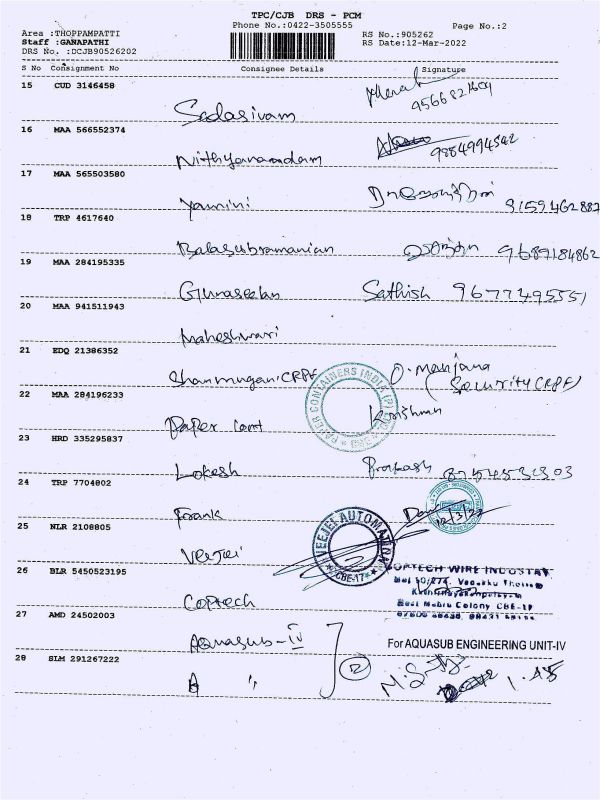 TPC/CJB DRS - PCM
Phone No.:0422-3505555
Page No.:2
Area :THOPPAMPATTI
Staff :GANAPATHI
DRS No. :DCJB90526202
RS No.:905262
RS Date:12-Mar-2022
S No Consignment No Consignee Details Signature
15 CUD 3146458
Sadasivam 9566821604
16 MAA 566552374
Nithyanandam 9884994542
17 MAA 565503580
Yamini 9159462887
18 TRP 4617640
Balasubramanian 9689184862
19 MAA 284195335
Gunaseelan Sathish 9677495551
20 MAA 941511943
Maheshwari
21 EDQ 21386352
Shanmugani CRPF O. Manjana
Security (CRPF)
22 MAA 284196233
PAPER CONTAINERS INDIA (P)
Paper Cont Krishnan
23 HRD 335295837
Lokesh Prakash 8754532303
24 TRP 7704802
Frank 12/3/22
25 NLR 2108805
VEEJEI AUTOMATION
CBE-17
Veejei
26 BLR 5450523195
COPTECH WIRE INDUSTRY
Coptech
Nehru Colony CBE-17
27 AMD 24502003
Aquasub-IV For AQUASUB ENGINEERING UNIT-IV
28 SLM 291267222
A " 2 1.45